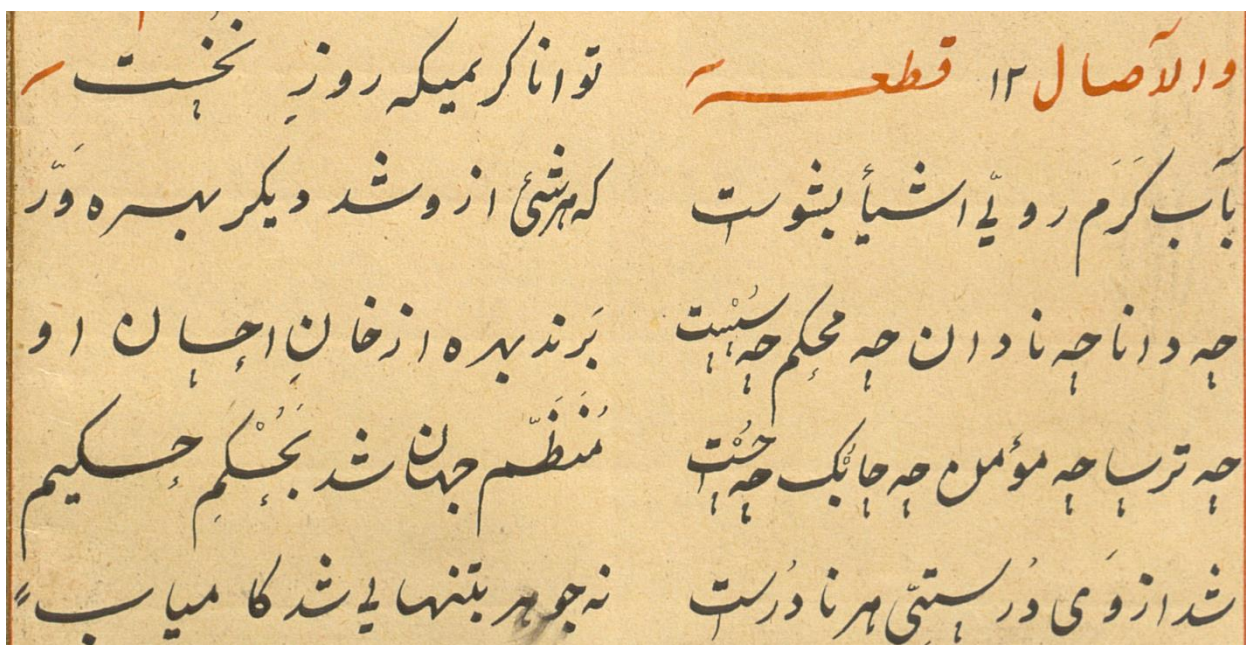 والآصال ۱۲ قطعه توانا کریمیکه روزِ نخُست
بآب کَرَم رویّ اشیأ بشوست که هرشئ ازوشد دیکر بهره وَرّ
چه دانا چه نادان چه محکم چه سُسْت بَرَند بهره از خانِ احسان او
چه ترسا چه مؤمن چه چابُک چه چُسْت مُنَظَّم جهان شد بَحُکْمِ حکیم
شد از وَی دُرستیّ هر نادُرست نه جوهر بتنهایی شد کامیاب